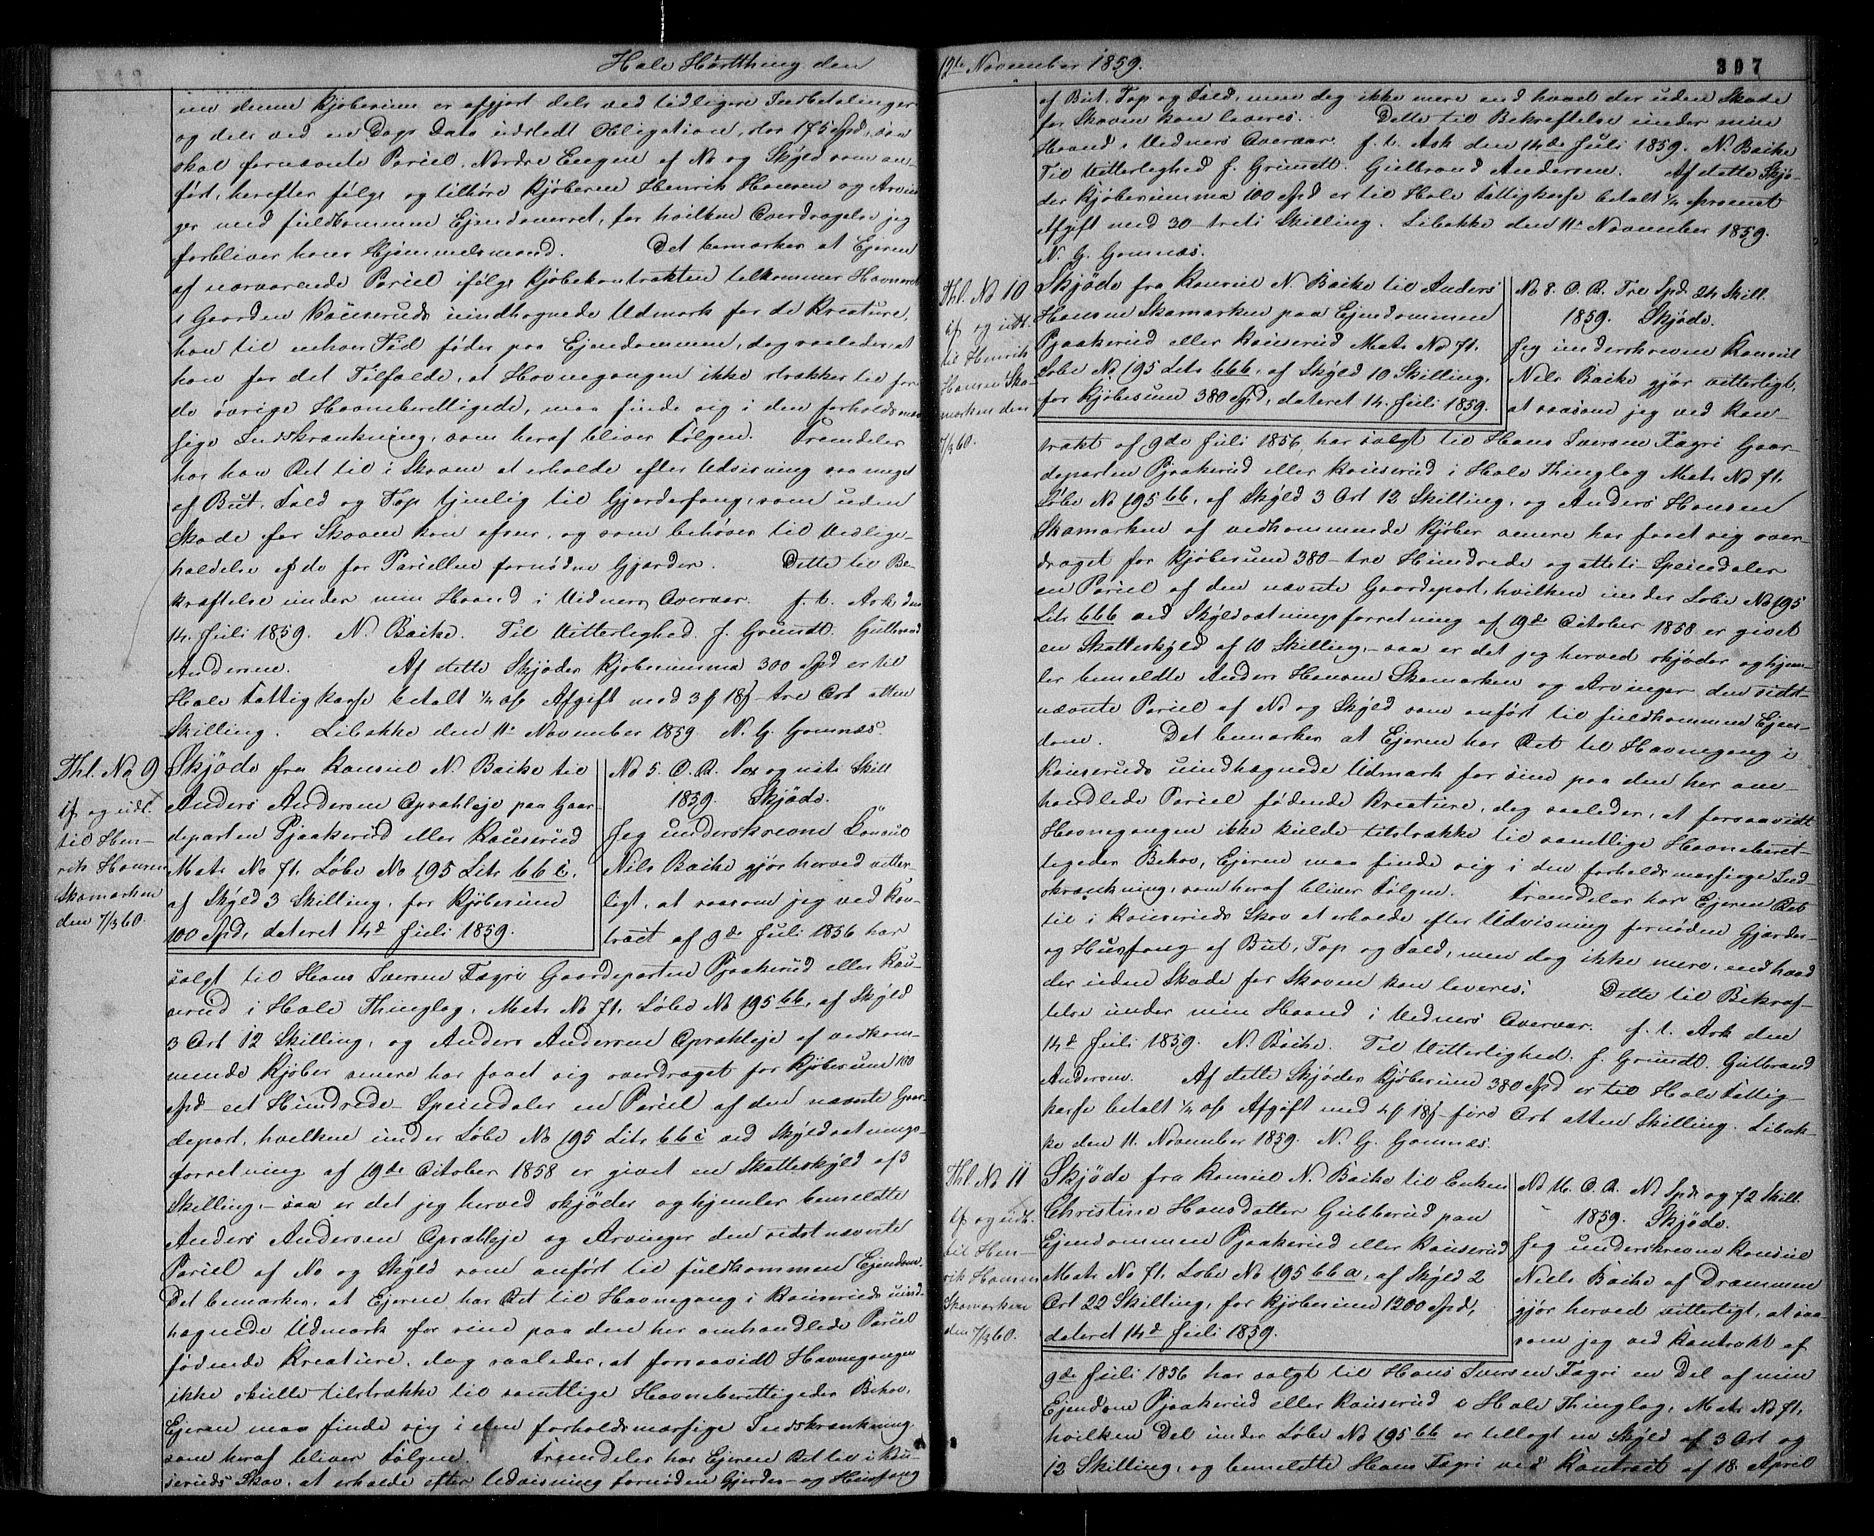 Hole Høstthing den
nu denne Kjøbesum er afgjort dels ved tidligere Indbetalinger
og dels ved en Dags Dato udstedt Obligation, stor 175 Spd, saa
skal fornævnte Parcel, Nordre Engen af No og Skyld som an-
ført, herefter følge og tilhøre Kjøberen Henrik Hansen og Arvin
ger med fuldkommen Eiendomsret, for hvilken Overdragelse jeg
forbliver hans Hjemmelsmand. Det bemærkes at Ejeren
af nærværende Parcel ifølge Kjøbekontrakten tilkommer Havneret
i Gaarden Rouseruds uindhegnede Udmark for de Kreature,
han til enhver Tid føder paa Ejendommen, dog saaledes, at
han for det Tilfælde, at Havnegangen ikke strækker til for
de øvrige Havneberettigede, maa finde sig i den forholdsmæs
sige Indskrænkning, som heraf bliver Følgen. Fremdeles
har han Ret til i Skoven at erholde efter Udvisning saa meget
af But, Fald og Top tjenlig til Gjærdefang, som uden
Skade for Skoven kan afsees, og som behøves til Vedlige-
holdelse af de for Parcellen fornødne Gjærder. Dette til Be-
kræftelse under min Haand i Vidners Overvær. f. t. Ask den
14. Juli 1859. N. Backe. Til Vitterlighed J. Grundt. Gulbrand
Andersen. Af dette Skjødes Kjøbesumma 300 Spd er til
Hole Fattigkasse betalt ¼ % Afgift med 3 ƒ 18 ƒ - tre Ort atten
Skilling. Libakke den 11te November 1859 N. G. Gomnæs.
Thl. No 9
Af og udt.
til Hen-
rik Hansen
Skamarken
den 7/3 60.
Skjøde fra Konsul N. Backe til
Anders Andersen Oprahleje paa Gaar
departen Pjaakerud eller Rouserud
Matr. No 71. Løbe No 195 Litr. bbc,
af Skyld 3 Skilling, for Kjøbesum
100 Spd, dateret 14de Juli 1859.
No 5. O. R. Sex og niti Skill
1859. Skjøde.
Jeg underskrevne Consul
Niels Backe gjør herved vitter
ligt, at saasom jeg ved Kon-
tract af 9de Juli 1856 har
solgt til Hans Iversen Fagri Gaardeparten Pjaakerud eller Rou-
serud i Hole Thinglag, Matr. No 71, Løbe No 195 bb, af Skyld
3 Ort 12 Skilling, og Anders Andersen Oprahleje af vedkom-
mende Kjøber senere har faaet sig overdraget for Kjøbesum 100
Spd - eet Hundrede - Speciedaler en Parcel af den nævnte Gaar
depart, hvilken under Løbe No 195 Litr. bbc ved Skyldsætnings-
forretning af 19de October 1858 er givet en Skatteskyld af 3
Skilling, - saa er det jeg herved skjøder og hjemler bemeldte
Anders Andersen Oprahleje og Arvinger den sidstnævnte
Parcel af No og Skyld som anført til fuldkommen Ejendom.
Det bemærkes, at Ejeren har Ret til Havnegang i Rouseruds uind-
hegnede Udmark for sine paa den her omhandlede Parcel
fødende Kreature, dog saaledes, at forsaavidt Havnegangen
ikke skulde tilstrække til samtlige Havneberettigedes Behov,
Ejeren maa finde sig i den forholdsmæssige Indskrænkning
som heraf bliver Følgen. Fremdeles har Ejeren Ret til i Rou-
seruds Skov, at erholde efter Udvisning fornøden Gjærdes- og Husfang
12te November 1859.
307
af But, Top og Fald, men dog ikke mere end hvad der uden Skade
for Skoven kan leveres. Dette til Bekræftelse under min
Haand i Vidners Overvær. f. t. Ask den 14de Juli 1859. N. Backe
Til Vitterlighed J. Grundt. Gulbrand Andersen. Af dette Skjø-
des Kjøbesumma 100 Spd er til Hole Fattigkasse betalt ¼ Procent
Afgift med 30 - treti Skilling. Libakke den 11te November 1859.
N. G. Gomnæs.
Thl. No 10
Af og udt.
til Henrik
Hansen Ska-
marken den
7/3 60.
Skjøde fra Konsul N. Backe til Anders
Hansen Skamarken paa Ejendommen
Pjaakerud eller Rouserud Matr. No 71.
Løbe No 195 Litr. bbb, af Skyld 10 Skilling,
for Kjøbesum 380 Spd, dateret 14. Juli 1859.
No 8. O. R. Tre Spd. 24 Skill.
1859. Skjøde.
Jeg underskrevne Konsul
Niels Backe gjør vitterligt,
at saasom jeg ved Kon-
trakt af 9de Juli 1856, har solgt til Hans Iversen Fagri Gaar-
departen Pjaakerud eller Rouserud i Hole Thinglag Matr. No 71.
Løbe No 195 bb, af Skyld 3 Ort 12 Skilling, og Anders Hansen
Skamarken af vedkommende Kjøber senere har faaet sig over-
draget for Kjøbesum 380 - tre Hundrede og otteti - Speciedaler
en Parcel af den nævnte Gaardepart, hvilken under Løbe No 195
Litr. bbb ved Skyldsætningsforretning af 19de October 1858 er givet
en Skatteskyld af 10 Skilling, - saa er det jeg herved skjøder og hjem-
ler bemeldte Anders Hansen Skamarken og Arvinger den sidst-
nævnte Parcel af No og Skyld som anført til fuldkommen Ejen-
dom. Det bemærkes at Ejeren har Ret til Havnegang i
Rouseruds uindhegnede Udmark for sine paa den her om-
handlede Parcel fødende Kreature, dog saaledes, at forsaavidt
Havnegangen ikke kulde tilstrække til samtlige Havneberet-
tigedes Behov, Ejeren maa finde sig i den forholdsmæssige Ind-
skrænkning, som heraf bliver Følgen. Fremdeles har Ejeren Ret
til i Rouseruds Skov at erholde efter Udvisning fornøden Gjærdes-
og Husfang af But, Top og Fald, men dog ikke mere, end hvad
der uden Skade for Skoven kan leveres. Dette til Bekræf-
telse under min Haand i Vidners Overvær. f. t. Ask den
14de Juli 1859. N. Backe. Til Vitterlighed. J. Grundt. Gulbrand
Andersen. Af dette Skjødes Kjøbesum 380 Spd er til Hole Fattig-
kasse betalt ¼ % Afgift med 4 ƒ 18 ƒ - fire Ort atten Skilling. Libak-
ke den 11. November 1859. N. G. Gomnæs.
Thl. No 11
Af og udt.
til Hen-
rik Hansen
Skamarken
den 7/3 60.
Skjøde fra Konsul N. Backe til Enken
Christine Hansdatter Gubberud paa
Ejendommen Pjaakerud eller Rouserud
Matr. No 71. Løbe No 195 bba, af Skyld 2
Ort 22 Skilling, for Kjøbesum 1200 Spd,
dateret 14de Juli 1859.
No 11. O. R. Ni Spd og 72 Skill.
1859. Skjøde.
Jeg underskrevne Konsul
Niels Backe af Drammen
gjør herved vitterligt, at saa-
som jeg ved Kontrakt af
9de Juli 1856 har solgt til Hans Iversen Fagri en Del af min
Ejendom Pjaakerud eller Rouserud i Hole Thinglag, Matr. No 71.
hvilken Del under Løbe No 195 bb er tillagt en Skyld af 3 Ort og
12 Skilling, og bemeldte Hans Fagri ved Kontract af 18. April